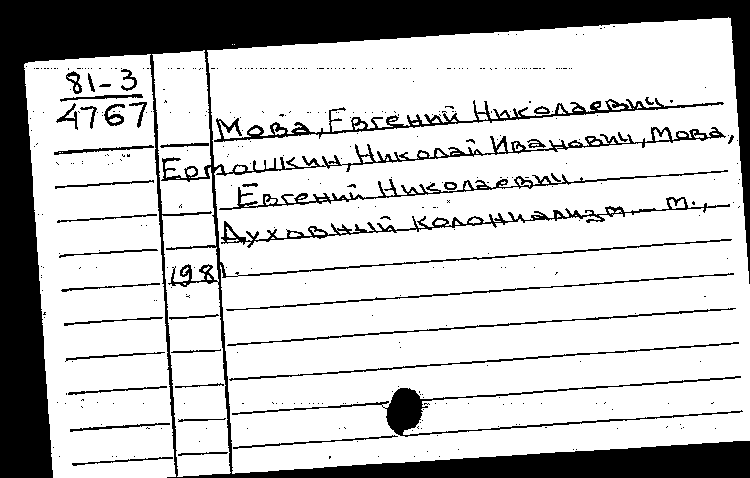 81-3
4767
Мова, Евгений Николаевич.
Ермошкин, Николай Иванович, Мова,
Евгений Николаевич.
Духовный колониализм.- М.,
1981.